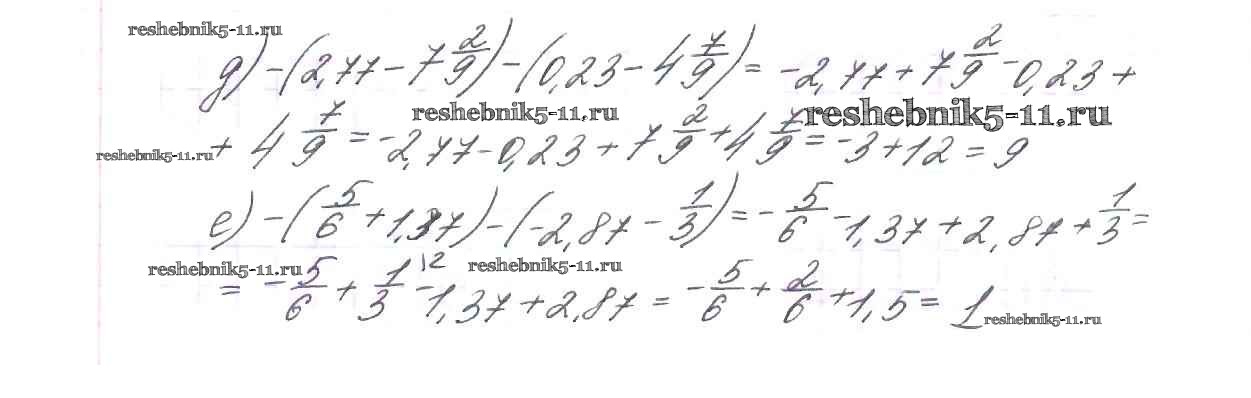 reshebnik5-11.ru
д) -(2,77 - 7 2/9) - (0,23 - 4 7/9) = -2,77 + 7 2/9 - 0,23 +
reshebnik5-11.ru reshebnik5-11.ru
+ 4 7/9 = -2,77 - 0,23 + 7 2/9 + 4 7/9 = -3 + 12 = 9
reshebnik5-11.ru
е) -(5/6 + 1,37) - (-2,87 - 1/3) = - 5/6 - 1,37 + 2,87 + 1/3 =
reshebnik5-11.ru reshebnik5-11.ru
= - 5/6 + 1/3 \2 - 1,37 + 2,87 = - 5/6 + 2/6 + 1,5 = 1
reshebnik5-11.ru